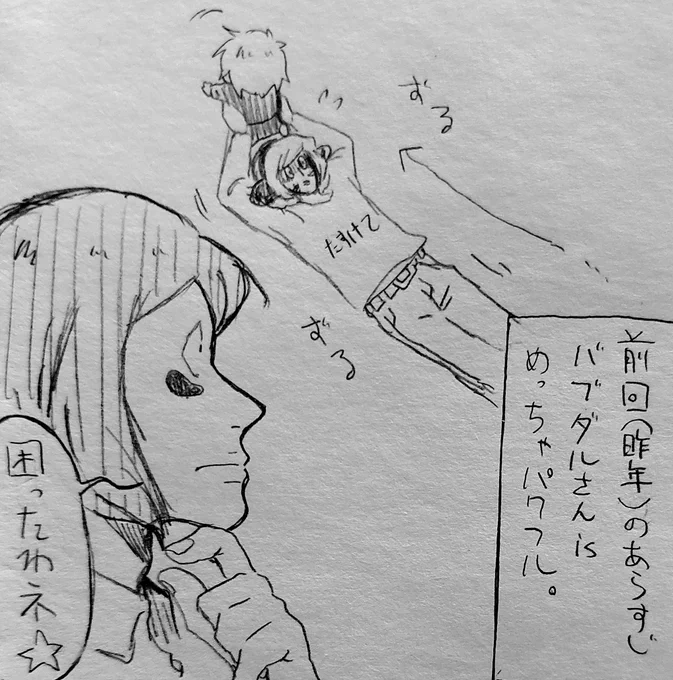 前回(昨年)のあらすじ
バブダルさんis
めっちゃパワフル。
ずる
たすけて
ずる
困ったわネ☆